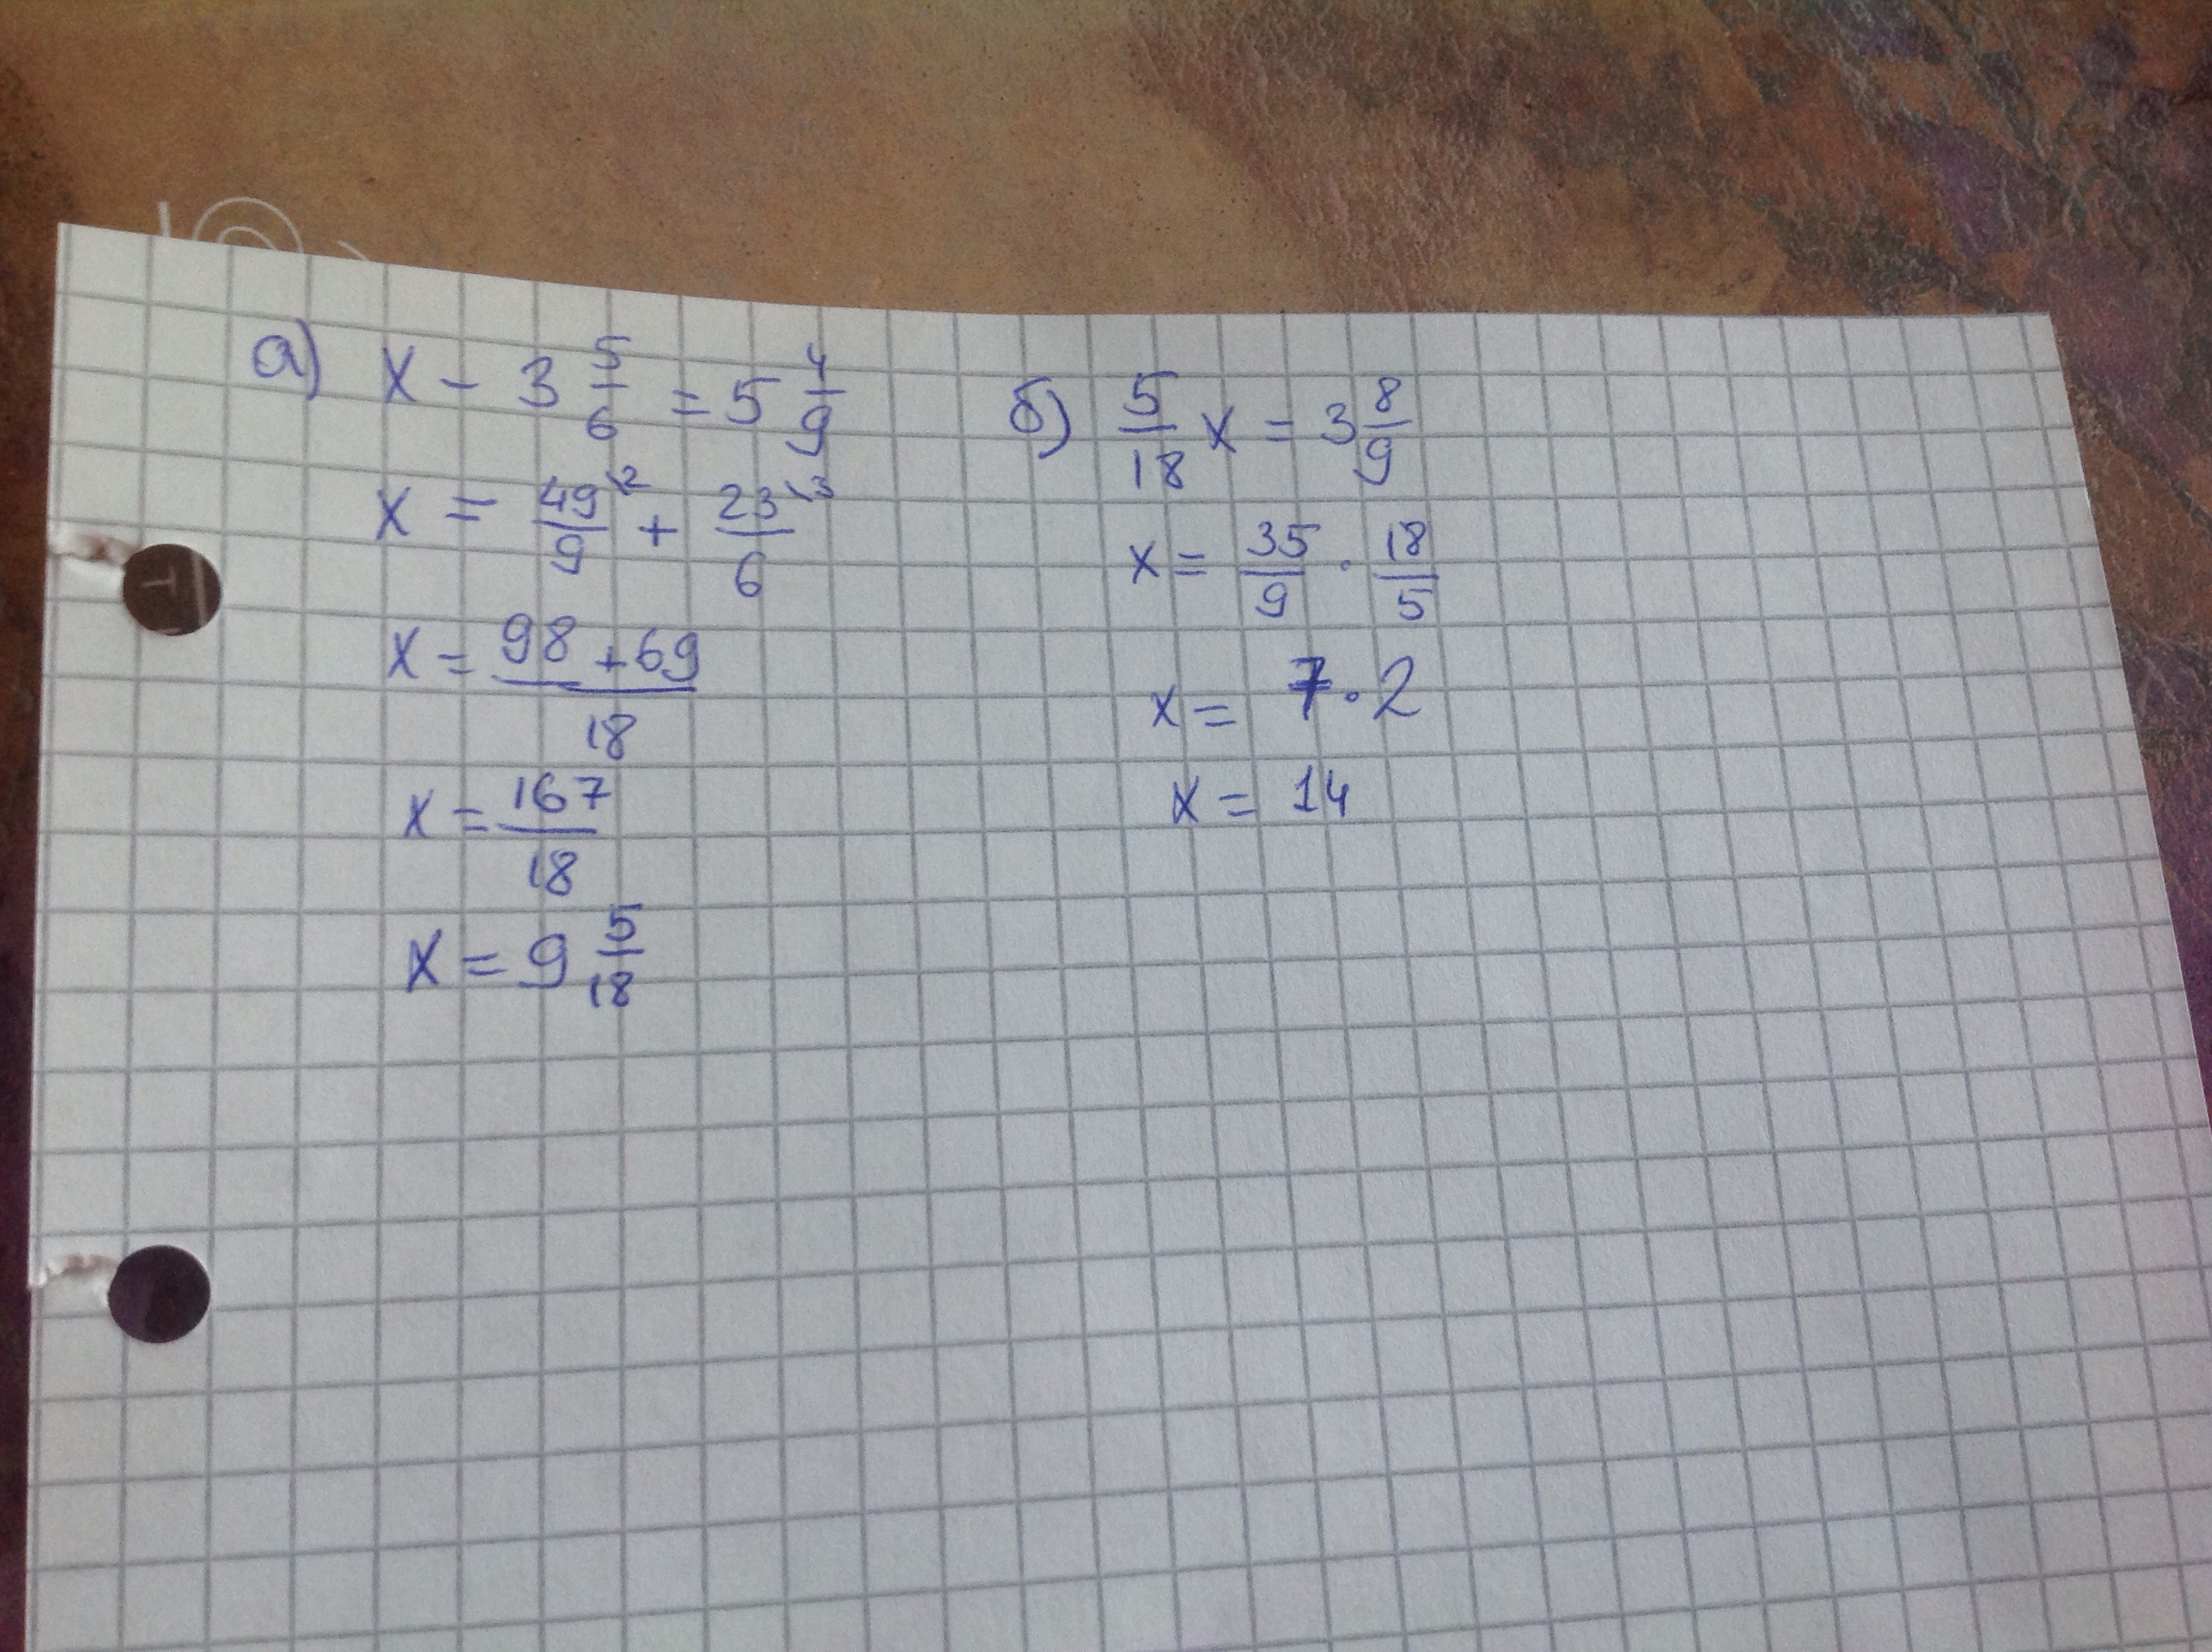 а) x - 3 5/6 = 5 4/9
x = 49/9 \2 + 23/6 \3
x = (98 + 69)/18
x = 167/18
x = 9 5/18
б) 5/18 x = 3 8/9
x = 35/9 · 18/5
x = 7 · 2
x = 14